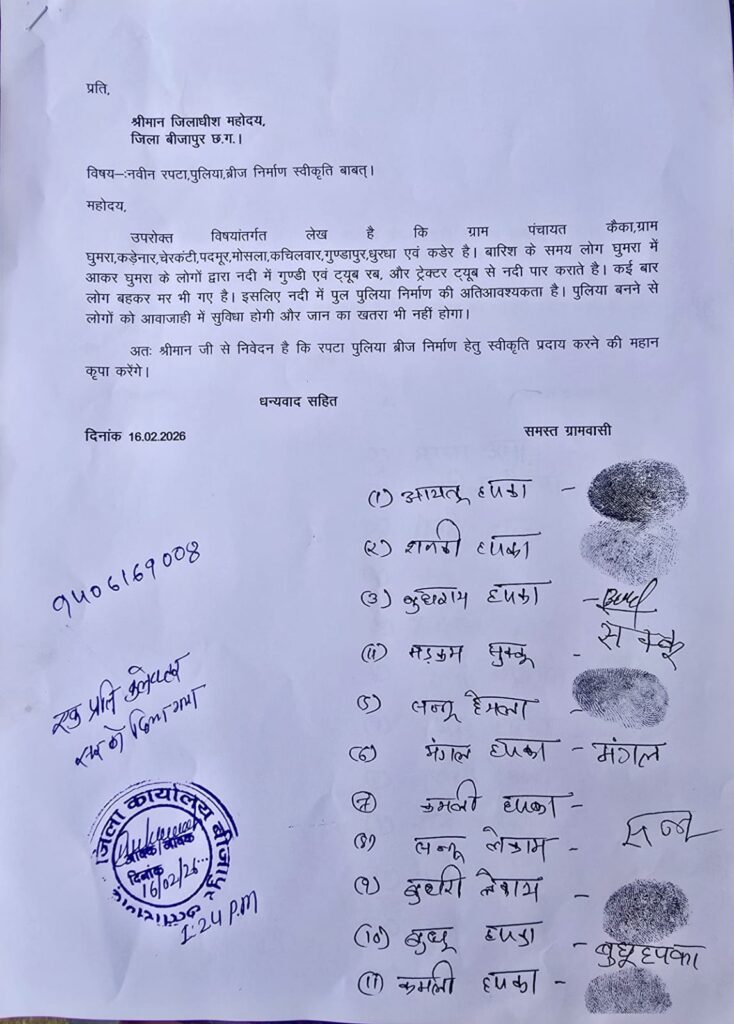 प्रति,
श्रीमान जिलाधीश महोदय,
जिला बीजापुर छ.ग.।
विषय–:नवीन रपटा,पुलिया,ब्रीज निर्माण स्वीकृति बाबत्।
महोदय,
उपरोक्त विषयांतर्गत लेख है कि ग्राम पंचायत कैका,ग्राम
घुमरा,कड़ेनार,चेरकंटी,पदमूर,मोसला,कचिलवार,गुण्डापुर,धुरधा एवं कडेर है। बारिश के समय लोग घुमरा में
आकर घुमरा के लोगों द्वारा नदी में गुण्डी एवं ट्यूब रब, और ट्रेक्टर ट्यूब से नदी पार कराते है। कई बार
लोग बहकर मर भी गए है। इसलिए नदी में पुल पुलिया निर्माण की अतिआवश्यकता है। पुलिया बनने से
लोगों को आवाजाही में सुविधा होगी और जान का खतरा भी नहीं होगा।
अतः श्रीमान जी से निवेदन है कि रपटा पुलिया ब्रीज निर्माण हेतु स्वीकृति प्रदाय करने की महान
कृपा करेंगे।
धन्यवाद सहित
दिनांक 16.02.2026 समस्त ग्रामवासी
(1) आयतू हपका –
(२) हपका
(3) बुधराम हपका –
सुक्कू –
(5) लच्छू हेमला –
(6) मंगल हपका – मंगल
7 कमली हपका –
(8) लच्छू लेकाम –
(9) बुधरी लेकाम –
(10) बुधू हपका – बुधू हपका
(11) कमली हपका –
9406169008
एक प्रति कलेक्टर
सर को दिया गया
जिला कार्यालय बीजापुर
आवक/जावक
दिनांक 16/02/26...
1:24 P.M